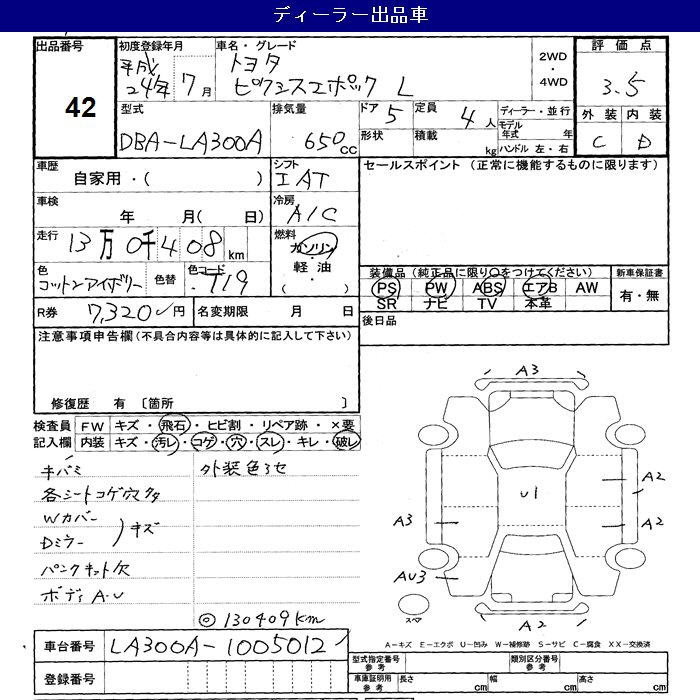 ディーラー出品車
出品番号 42
初度登録年月 平成24年7月
車名・グレード トヨタ
ピクシスエポック L
2WD
・
4WD
評価点
3.5
外装 内装
C D
型式 DBA-LA300A
排気量 650cc
ドア 5
形状
定員 4人
積載 kg
ディーラー・並行
モデル年式 年
ハンドル 左・右
車歴 自家用・( )
シフト IAT
セールスポイント (正常に機能するものに限ります)
車検 年 月( 日)
冷房 A/C
走行 13万0千408km
燃料 ガソリン
・
軽油
色 コットンアイボリー
色替
色コード T19
装備品(純正品に限り○をつけてください)
PS PW ABS エアB AW
SR ナビ TV 本革
新車保証書
有・無
R券 7,320円
名変期限 月 日
後日品
注意事項申告欄(不具合内容等は具体的に記入して下さい)
修復歴 有 〔箇所 〕
検査員 FW キズ・飛石・ヒビ割・リペア跡・×要
記入欄 内装 キズ・汚レ・コゲ・穴・スレ・キレ・破レ
キバミ
外装色アセ
各シートコゲ穴クタ
Wカバー
Dミラー )キズ
パンクキット欠
ボディA.U
◎130409km
A3
U1
A2
A3
A2
AU3
スペア
A2
A-キズ E-エクボ U-凹み W-補修跡 S-サビ C-腐食 XX-交換済
車台番号 LA300A-1005012
登録番号
型式指定番号 参考
類別区分番号 参考
車庫証明用 参考
長さ cm
幅 cm
高さ cm